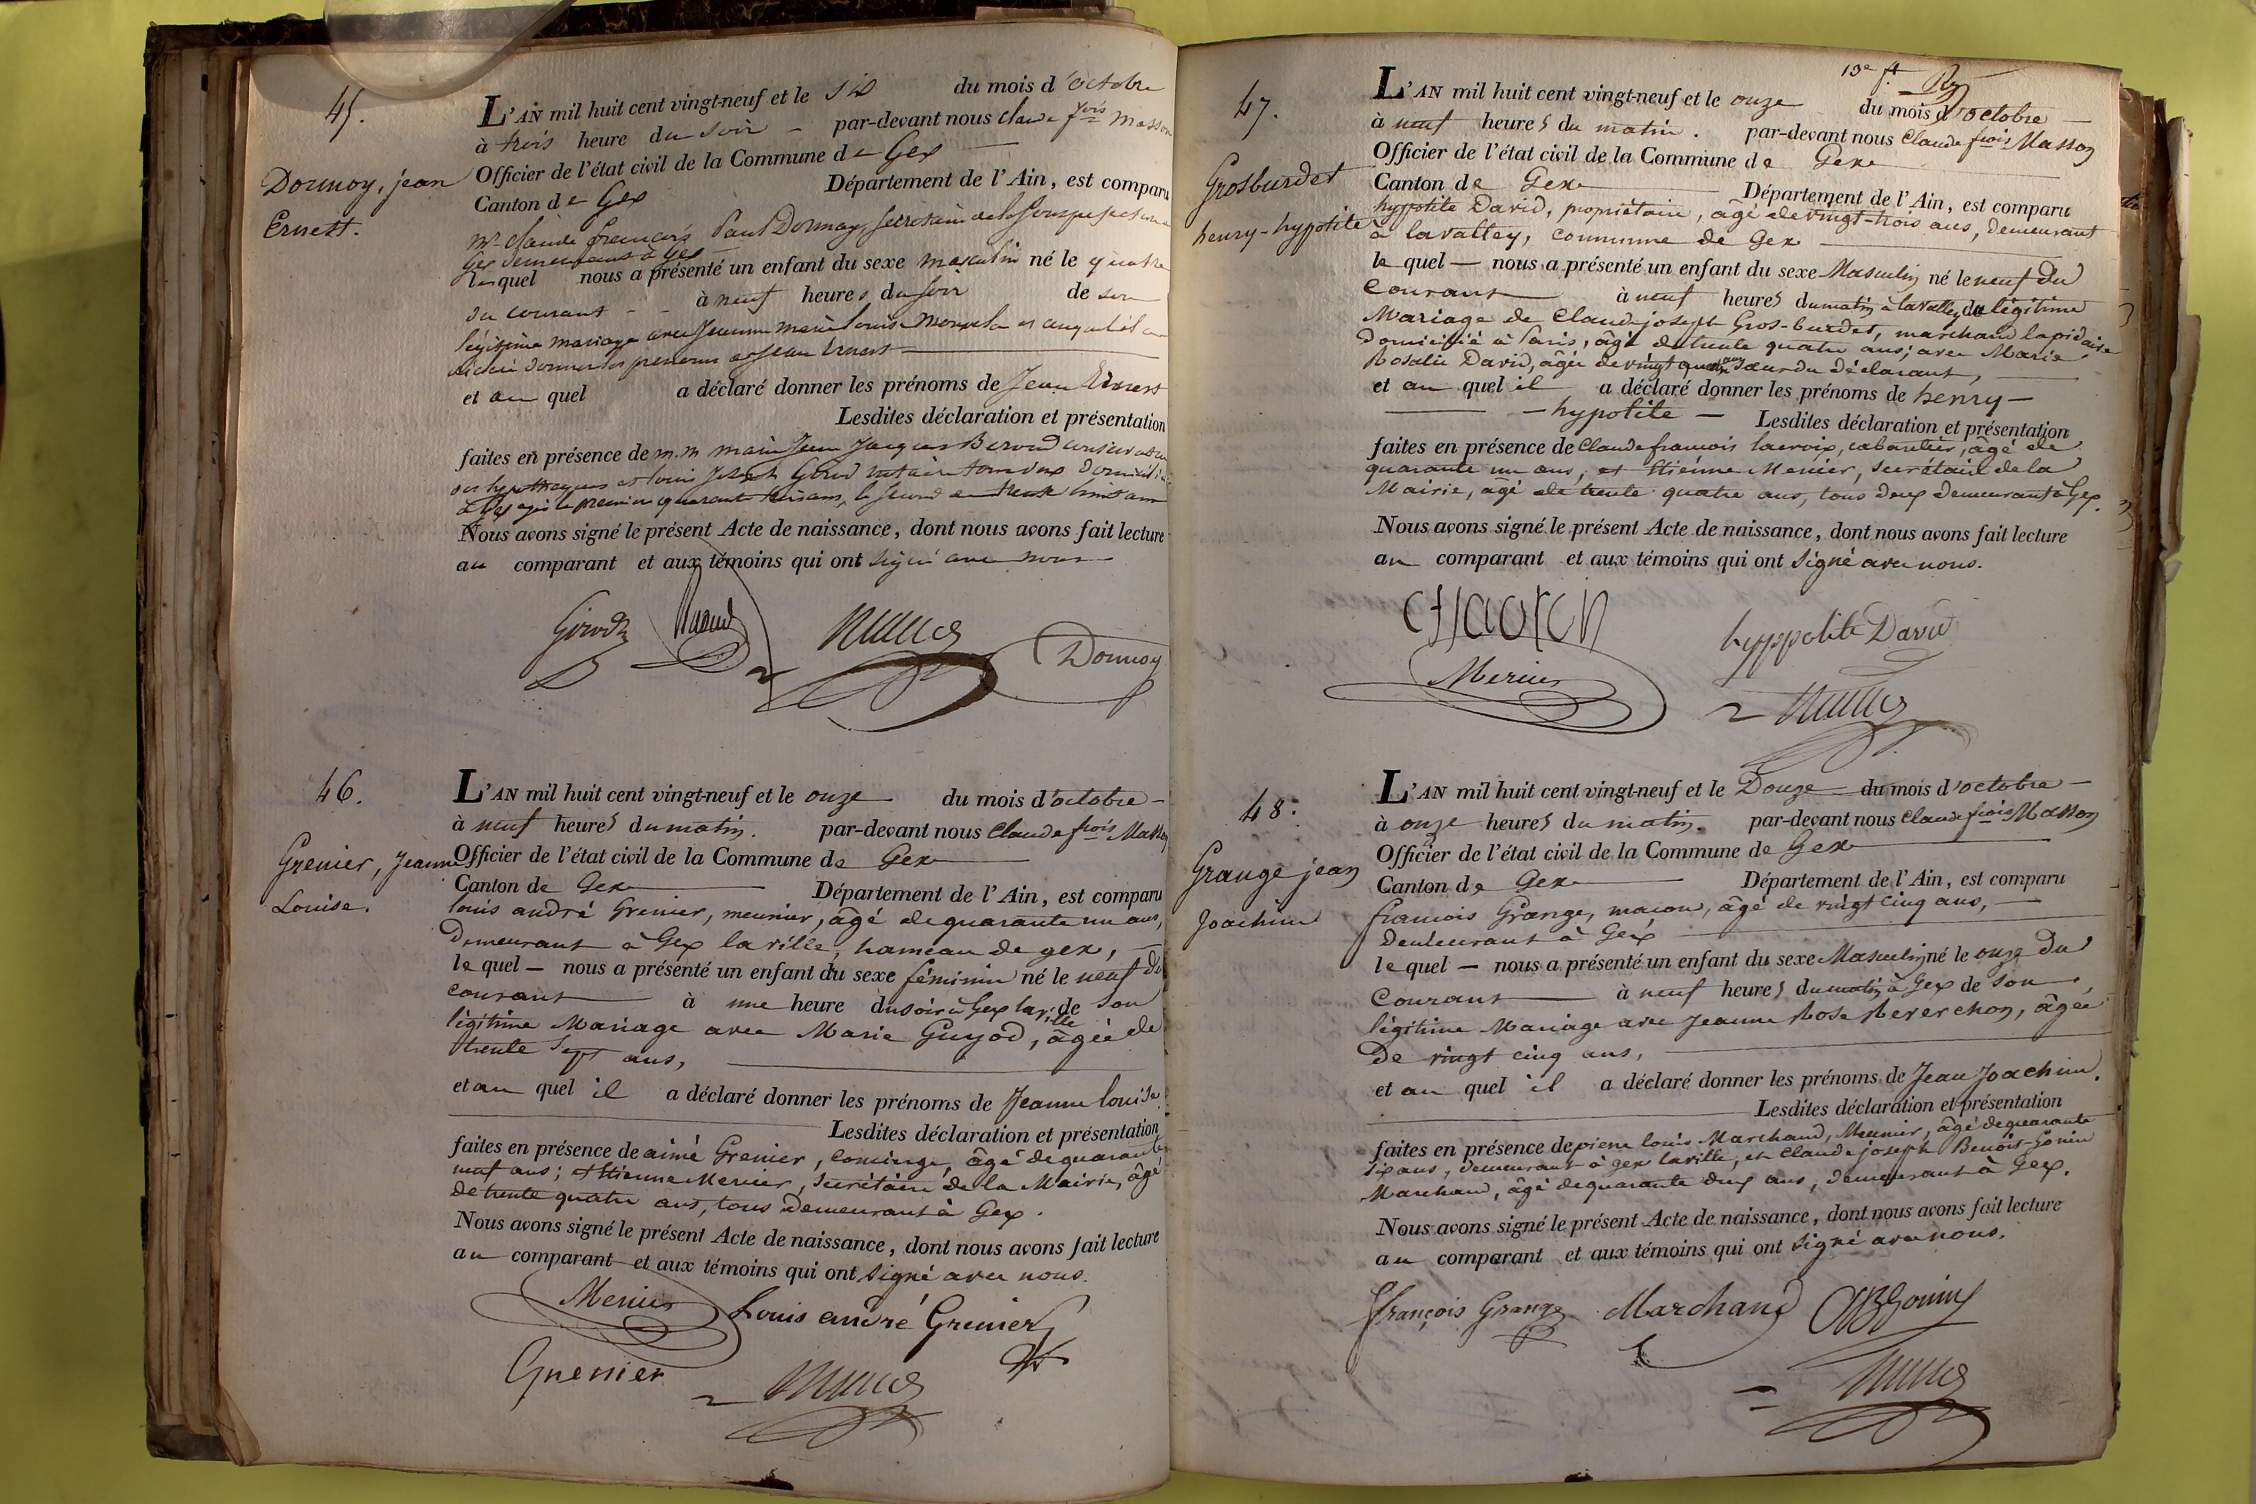 45.
Dounoy, jean
Ernest.
L'AN mil huit cent vingt-neuf et le six du mois d'octobre
à trois heure du soir - par-devant nous Claude fois Masson
Officier de l'état civil de la Commune de Gex
Canton de Gex Département de l'Ain, est comparu
Mr Claude françois Paul Dounoy, secrétaire de la Souspréfecture
Gex demeurant à Gex
lequel nous a présenté un enfant du sexe masculin né le quatre
du courant - - à neuf heures du soir de son
légitime mariage avec marie louise et auquel il a
déclaré donner les prénoms de Jean Ernest
et au quel a déclaré donner les prénoms de Jean Ernest
Lesdites déclaration et présentation
faites en présence de m.m Jean Jacques conservateur
des hypothèques et louis Joseph Girod notaire tous deux domiciliés
à Gex agés le premier quarante ans, le second de trente huit ans
Nous avons signé le présent Acte de naissance, dont nous avons fait lecture
au comparant et aux témoins qui ont signé avec nous
Girod
Dounoy
46.
Grenier, Jeanne
Louise.
L'AN mil huit cent vingt-neuf et le onze du mois d'octobre -
à neuf heures du matin. par-devant nous Claude fois Masson
Officier de l'état civil de la Commune de Gex
Canton de Gex Département de l'Ain, est comparu
louis andré Grenier, meunier, âgé de quarante un ans,
Demeurant à Gex la ville, hameau de gex,
lequel - nous a présenté un enfant du sexe féminin né le neuf du
courant à une heure du soir à Gex la ville de son
légitime Mariage avec Marie Guyod, âgée de
trente sept ans,
et au quel il a déclaré donner les prénoms de Jeanne louise.
Lesdites déclaration et présentation
faites en présence de aimé Grenier, concierge, âgé de quarante
neuf ans; et Etienne Mercier, Secrétaire de la Mairie, âgé
de trente quatre ans, tous Demeurant à Gex.
Nous avons signé le présent Acte de naissance, dont nous avons fait lecture
au comparant et aux témoins qui ont signé avec nous.
Mercier Louis andré Grenier
Grenier
13e ft
47.
Grosburdet
henry-hypolite
L'AN mil huit cent vingt-neuf et le onze du mois d'octobre
à neuf heures du matin. par-devant nous Claude fois Masson
Officier de l'état civil de la Commune de Gex
Canton de Gex Département de l'Ain, est comparu
hyppolite David, propriétaire, âgé de vingt-trois ans, demeurant
à lavalley, commune de Gex
lequel - nous a présenté un enfant du sexe Masculin né le neuf du
courant à neuf heures du matin à lavalley du légitime
Mariage de Claude joseph Gros-burdet, marchand lapidaire
domicilié à Paris, âgé de trente quatre ans; avec Marie
Rosalie David, âgée de vingt quatre ans soeur du Déclarant,
et au quel il a déclaré donner les prénoms de henry-
- hypolite - Lesdites déclaration et présentation
faites en présence de Claude francois lacroix, cabaretier, âgé de
quarante un ans, et Etienne Mercier, Secrétaire de la
Mairie, âgé de trente quatre ans, tous deux demeurant à Gex.
Nous avons signé le présent Acte de naissance, dont nous avons fait lecture
au comparant et aux témoins qui ont Signé avec nous.
hyppolite David
Mercier
48.
Grange jean
Joachim
L'AN mil huit cent vingt-neuf et le Douze du mois d'octobre -
à onze heures du matin. par-devant nous Claude fois Masson
Officier de l'état civil de la Commune de Gex
Canton de Gex Département de l'Ain, est comparu
francois Grange, macon, âgé de vingt cinq ans,
Demeurant à Gex
lequel - nous a présenté un enfant du sexe Masculin né le onze du
courant à neuf heures du matin à Gex de son
légitime Mariage avec Jeanne Rose Reverchon, âgée
De vingt cinq ans,
et au quel il a déclaré donner les prénoms de Jean Joachim.
Lesdites déclaration et présentation
faites en présence de pierre louis Marchand, Meunier, âgé de quarante
six ans, demeurant à gex la ville, et Claude joseph Benoit-Gonin
Marchand, âgé de quarante deux ans, demeurant à Gex.
Nous avons signé le présent Acte de naissance, dont nous avons fait lecture
au comparant et aux témoins qui ont signé avec nous.
françois Grange Marchand